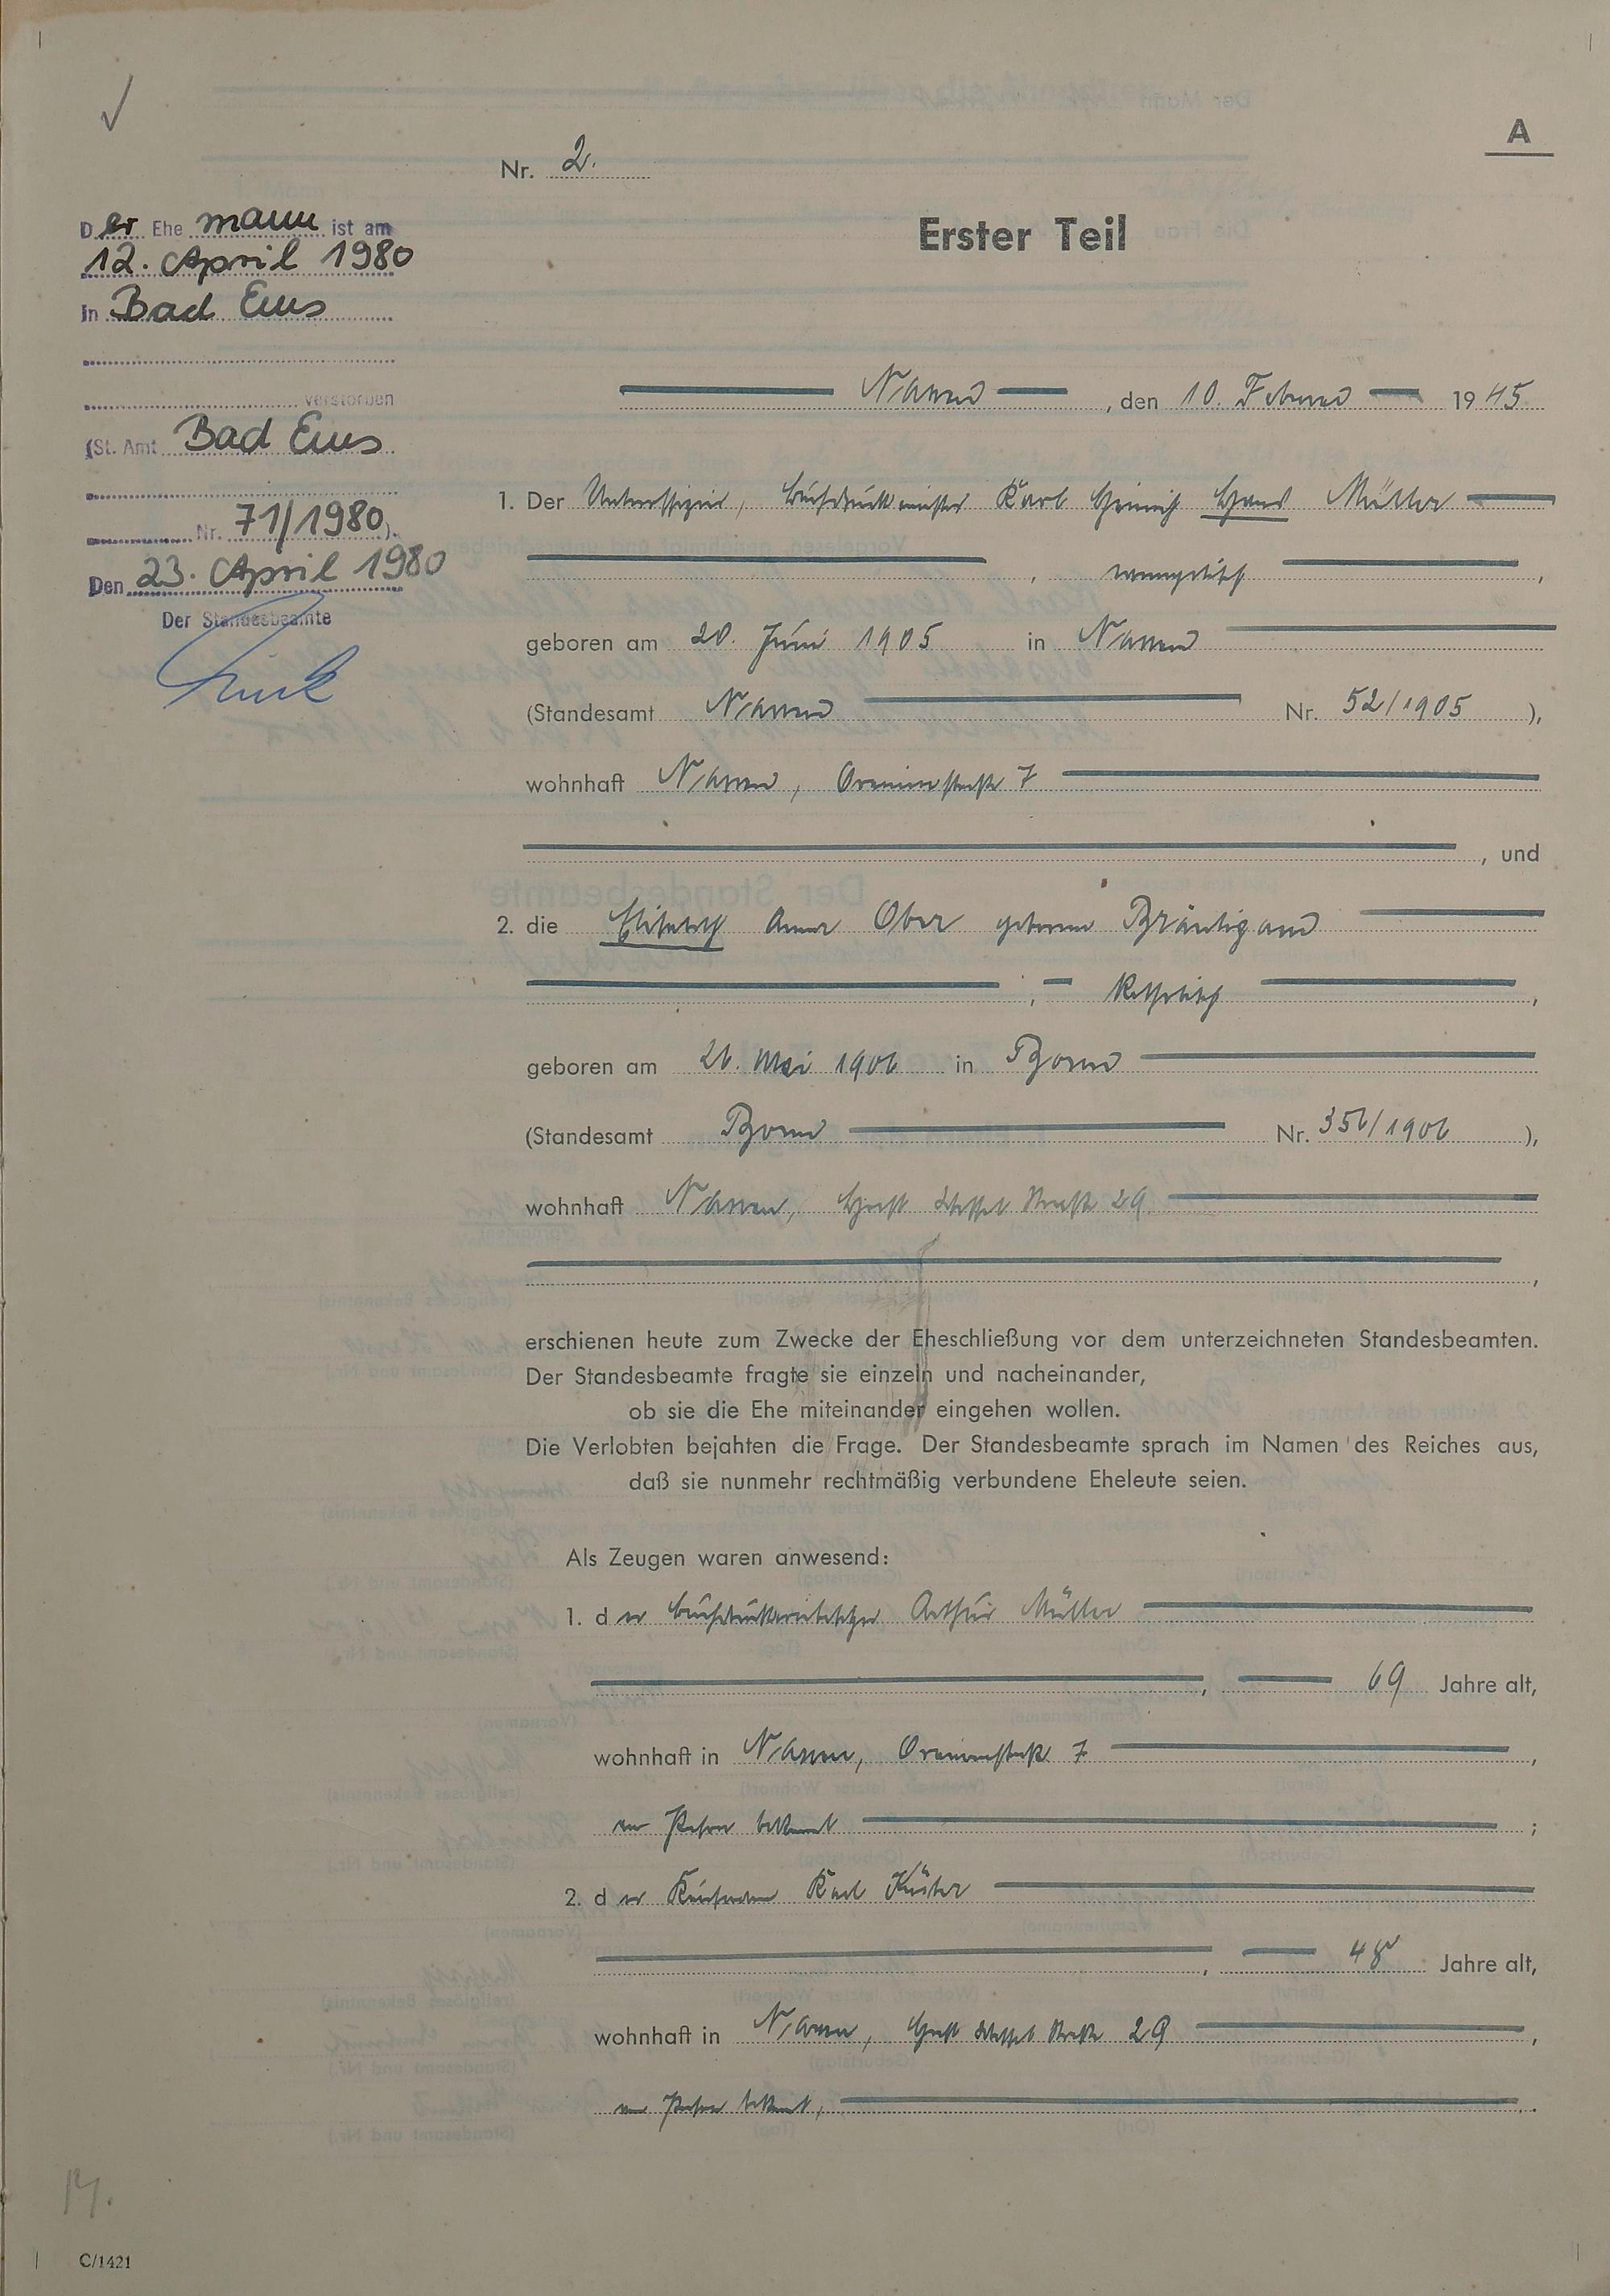 A
Nr. 2.
Erster Teil
Der Ehe mann ist am
12. April 1980
in Bad Ems
verstorben
(St. Amt Bad Ems
Nr. 71/1980).
Den 23. April 1980
Der Standesbeamte
Nassau, den 10. Februar 1945
1. Der Unteroffizier, Buchdruckmeister Karl Heinrich Hans Müller
, evangelisch,
geboren am 20. Juni 1905 in Nassau
(Standesamt Nassau Nr. 52/1905),
wohnhaft Nassau, Oranienstraße 7
, und
2. die Elisabeth Anna Ober geborene Bräutigam
, Katholisch,
geboren am 26. Mai 1906 in
(Standesamt Nr. 356/1906),
wohnhaft Nassau, Straße 29
erschienen heute zum Zwecke der Eheschließung vor dem unterzeichneten Standesbeamten.
Der Standesbeamte fragte sie einzeln und nacheinander,
ob sie die Ehe miteinander eingehen wollen.
Die Verlobten bejahten die Frage. Der Standesbeamte sprach im Namen des Reiches aus,
daß sie nunmehr rechtmäßig verbundene Eheleute seien.
Als Zeugen waren anwesend:
1. der Buchdruckereibesitzer Arthur Müller
, 69 Jahre alt,
wohnhaft in Nassau, Oranienstraße 7,
von Person bekannt;
2. der Kaufmann Karl Küster
, 48 Jahre alt,
wohnhaft in Nassau, Straße 29,
von Person bekannt,
14.
C/1421